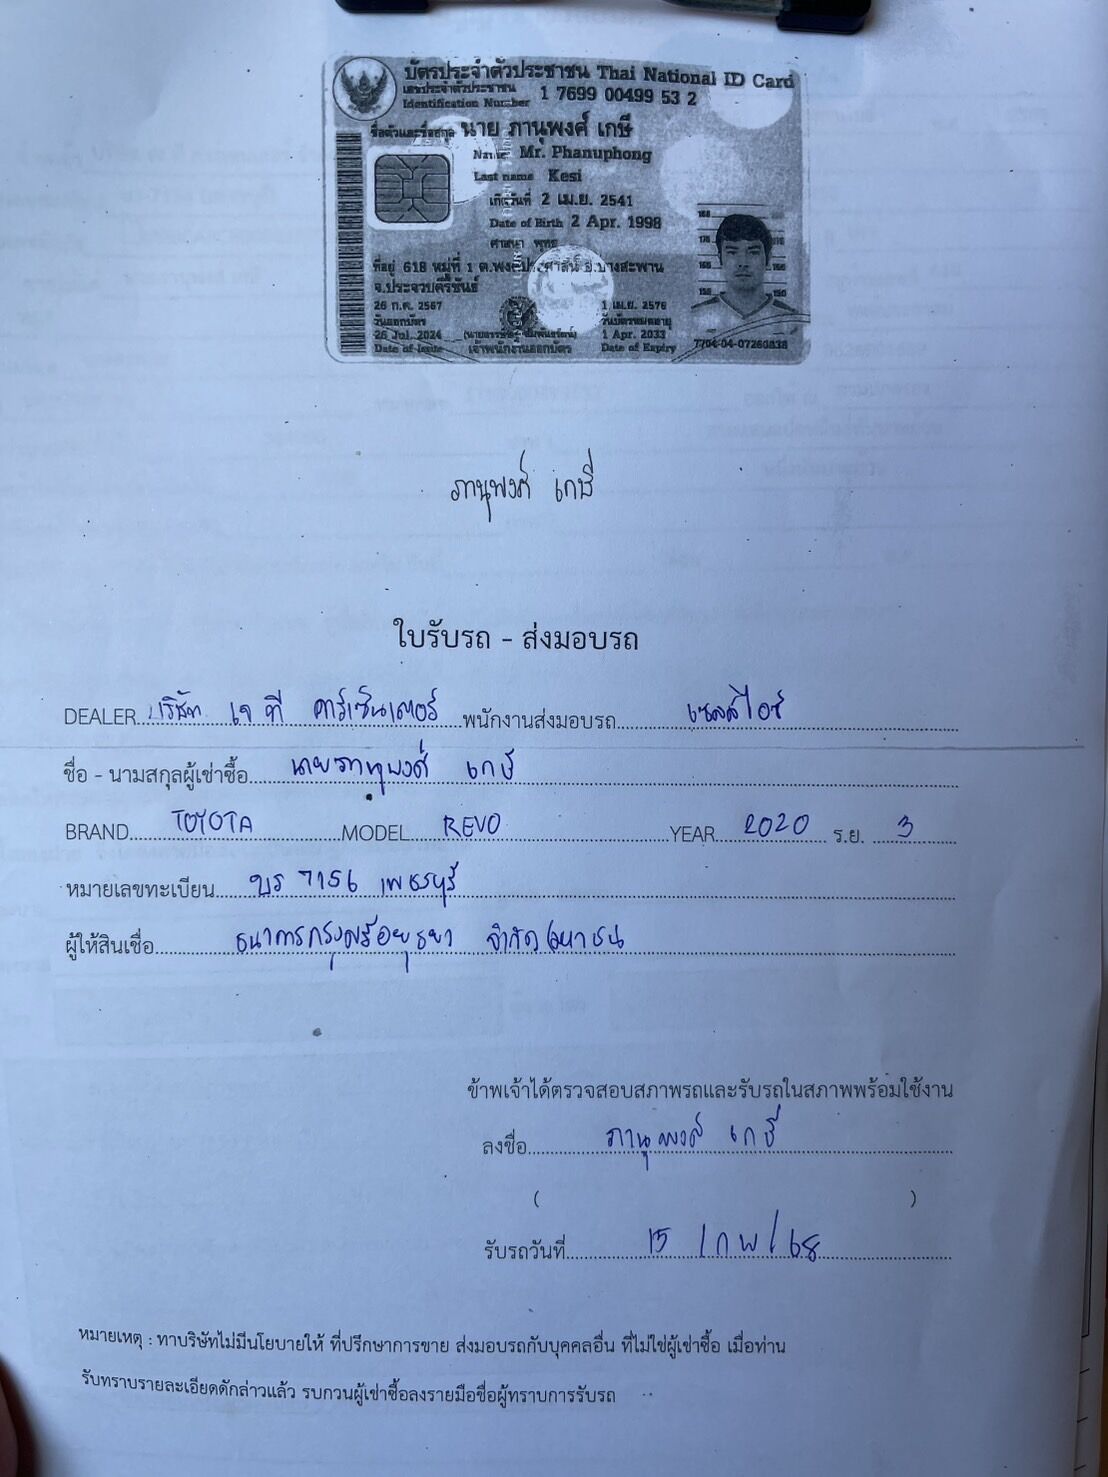 บัตรประจำตัวประชาชน Thai National ID Card
เลขประจำตัวประชาชน
Identification Number 1 7699 00499 53 2
ชื่อตัวและชื่อสกุล นาย ภานุพงศ์ เกษี
Name Mr. Phanuphong
Last name Kesi
เกิดวันที่ 2 เม.ย. 2541
Date of Birth 2 Apr. 1998
ศาสนา พุทธ
ที่อยู่ 618 หมู่ที่ 1 ต.พงศ์ประศาสน์ อ.บางสะพาน
จ.ประจวบคีรีขันธ์
26 ก.ค. 2567
วันออกบัตร
26 Jul. 2024
Date of Issue
เจ้าพนักงานออกบัตร
1 เม.ย. 2576
วันบัตรหมดอายุ
1 Apr. 2033
Date of Expiry
7704-04-07260838
ภานุพงศ์ เกษี
ใบรับรถ - ส่งมอบรถ
DEALER บริษัท เจ ที คาร์เซ็นเตอร์ พนักงานส่งมอบรถ
ชื่อ - นามสกุลผู้เช่าซื้อ นายภานุพงศ์ เกษี
BRAND TOYOTA MODEL REVO YEAR 2020 ร.ย. 3
หมายเลขทะเบียน 7156 เพชรบุรี
ผู้ให้สินเชื่อ ธนาคารกรุงศรีอยุธยา จำกัด มหาชน
ข้าพเจ้าได้ตรวจสอบสภาพรถและรับรถในสภาพพร้อมใช้งาน
ลงชื่อ ภานุพงศ์ เกษี
( )
รับรถวันที่ 15 / กพ / 68
หมายเหตุ : ทาบริษัทไม่มีนโยบายให้ ที่ปรึกษาการขาย ส่งมอบรถกับบุคคลอื่น ที่ไม่ใช่ผู้เช่าซื้อ เมื่อท่าน
รับทราบรายละเอียดดักล่าวแล้ว รบกวนผู้เช่าซื้อลงรายมือชื่อผู้ทราบการรับรถ